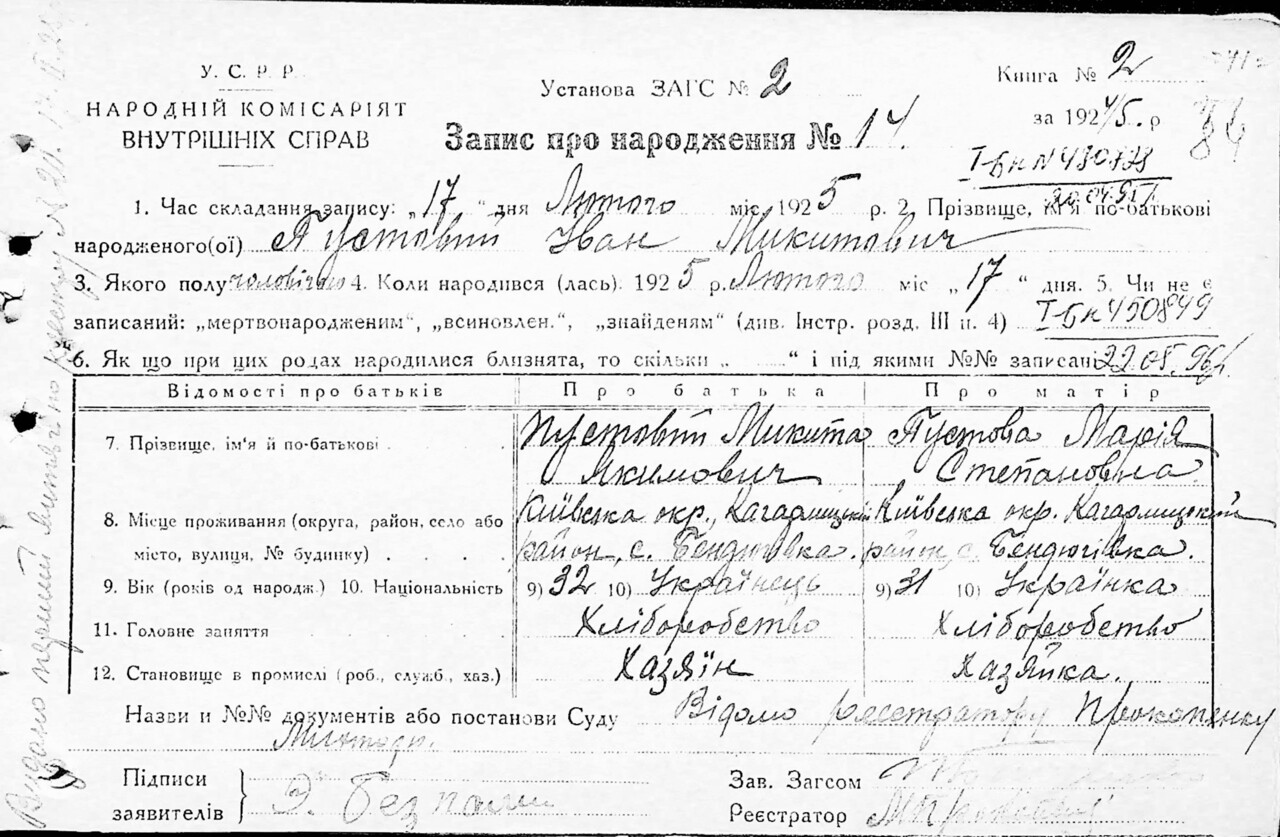 У. С. Р. Р.
НАРОДНІЙ КОМІСАРІЯТ
ВНУТРІШНІХ СПРАВ
Установа ЗАГС № 2
Книга № 2
за 1924/5. р
Запис про народження № 14.
І-БК N 430728
1. Час складання запису: „17“ дня Лютого міс 1925 р. 2. Прізвище, ім'я по-батькові
народженого(ої) Пустовий Іван Микитович
3. Якого полу чоловічого 4. Коли народився (лась). 1925 р. Лютого міс „17“ дня. 5. Чи не є
записаний: „мертвонародженим“, „всиновлен.“, „знайденям“ (див. Інстр. розд. III п. 4) І-БК 450849
6. Як що при цих родах народилися близнята, то скільки „ “ і під якими №№ записані 22.05.96р.
Відомості про батьків Про батька Про матір
7. Прізвище, ім'я й по-батькові Пустовий Микита Якимович Пустова Марія Степановна
8. Місце проживання (округа, район, село або місто, вулиця, № будинку) Київська окр., Кагарлицький район, с. Бендюгівка. Київська окр. Кагарлицький район, с. Бендюгівка.
9. Вік (років од народж.) 10. Національність 9) 32 10) Українець 9) 31 10) Українка
11. Головне заняття Хліборобство Хліборобство
12. Становище в промислі (роб., служб., хаз.) Хазяїн Хазяйка.
Назви и №№ документів або постанови Суду Відомо реєстратору Прокопенку
Підписи
заявителів
Зав. Загсом
Реєстратор